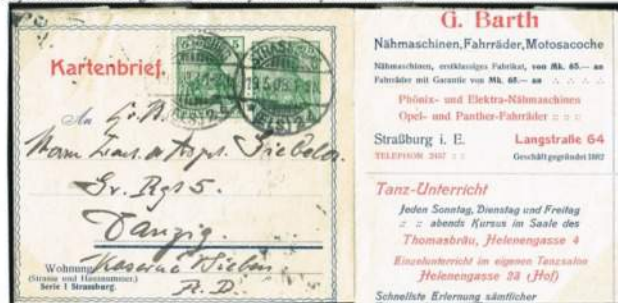 Kartenbrief.
STRASSBURG
(ELS) 2
5
STRASSBURG
19.5.09.
* (ELS) 2
An
Herrn
Gr. Rgt 5.
Danzig.
Wohnung Kaserne Wieben
(Strasse und Hausnummer.)
Serie I Strassburg.
G. Barth
Nähmaschinen, Fahrräder, Motosacoche
Nähmaschinen, erstklassiges Fabrikat, von Mk. 65.— an
Fahrräder mit Garantie von Mk. 68.— an
Phönix- und Elektra-Nähmaschinen
Opel- und Panther-Fahrräder : : :
Straßburg i. E. Langstraße 64
TELEPHON 2457 : : Geschäft gegründet 1882
Tanz-Unterricht
Jeden Sonntag, Dienstag und Freitag
: : abends Kursus im Saale des
Thomasbräu, Helenengasse 4
Einzelunterricht im eigenen Tanzsalon
Helenengasse 23 (Hof)
Schnellste Erlernung sämtlicher